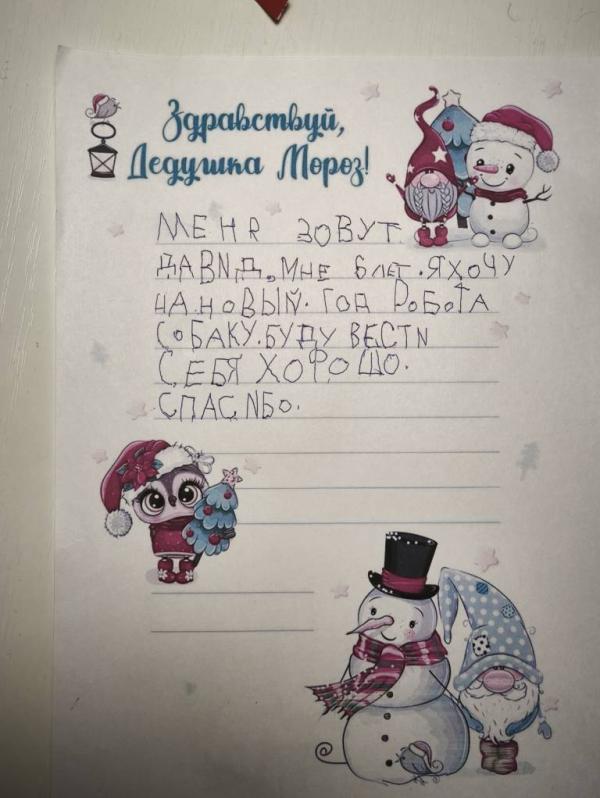 Здравствуй,
Дедушка Мороз!
МЕНЯ ЗОВУТ
ДАВИД, МНЕ 6 лет. Я ХОЧУ
НА НОВЫЙ. ГОД РОБОТА
СОБАКУ. БУДУ ВЕСТИ
СЕБЯ ХОРОШО.
СПАСИБО.